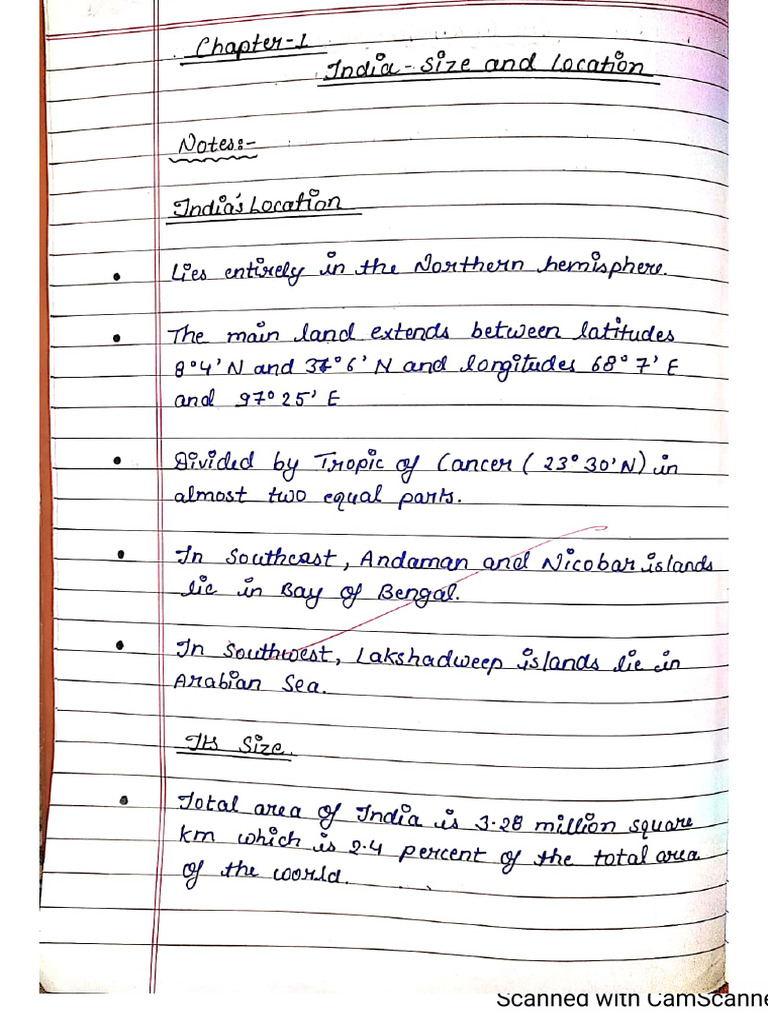 Chapter-1
India - Size and Location
Notes:-
India's Location
Lies entirely in the Northern hemisphere.
The main land extends between latitudes
8°4'N and 37°6'N and longitudes 68°7'E
and 97°25'E
Divided by Tropic of Cancer (23°30'N) in
almost two equal parts.
In Southeast, Andaman and Nicobar islands
lie in Bay of Bengal.
In Southwest, Lakshadweep islands lie in
Arabian Sea.
Its Size
Total area of India is 3.28 million square
km which is 2.4 percent of the total area
of the world.
Scanned with CamScanne